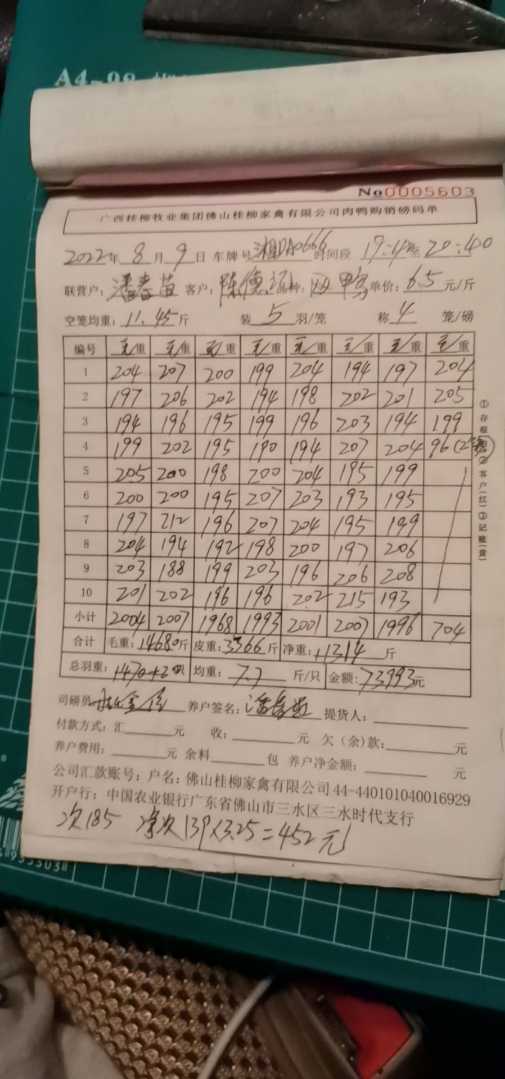 A4-98
No0005603
广西桂柳牧业集团佛山桂柳家禽有限公司肉鸭购销磅码单
2022年 8月 9日 车牌号 时间段 20:40
联营户: 客户: 单价: 6.5 元/斤
空笼均重: 11.45斤 装 5 羽/笼 称 4 笼/磅
编号 毛/重 毛/重 毛/重 毛/重 毛/重 毛/重 毛/重 毛/重
1 204 207 200 199 204 194 197 204
2 197 206 202 194 198 202 201 205
3 194 196 195 199 196 203 194 199
4 199 202 195 190 194 207 204 96
5 205 200 198 200 204 195 199
6 200 200 195 207 203 193 195
7 197 212 196 207 204 195 199
8 204 194 192 198 200 197 206
9 203 188 199 203 196 206 208
10 201 202 196 196 202 215 193
小计 2004 2007 1968 1993 2001 2007 1996 704
合计 毛重: 14680斤 皮重: 3366斤 净重: 11314 斤
总羽重: 均重: 7.7 斤/只 金额: 73993元
司磅员 养户签名: 提货人:
付款方式: 汇 元 收: 元 欠(余)款: 元
养户费用: 元 余料 包 养户净金额: 元
公司汇款账号: 户名: 佛山桂柳家禽有限公司44-440101040016929
开户行: 中国农业银行广东省佛山市三水区三水时代支行
次185 净次139×3.25=452元
①存根 ②客户(红) ③记账(黄)